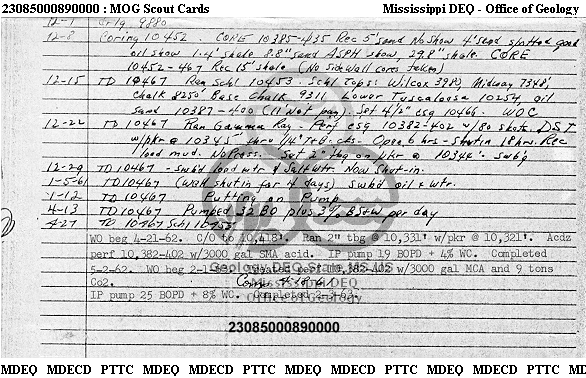 23085000890000 : MOG Scout Cards Mississippi DEQ - Office of Geology
12-1 drlg 9880
12-8 Coring 10452. CORE 10385-435 Rec 5' sand No Show 4' sand spotted good
oil show 1.4' shale 8.8" sand ASPH show, 29.8' shale. CORE
10452-467 Rec 15' shale (No sidewall cores taken)
12-15 TD 10467 Ran Schl 10453. Schl Tops: Wilcox 3980, Midway 7348',
Chalk 8250' Base Chalk 9311 Lower Tuscaloosa 10254, oil
sand 10387-400 (11' Net pay). Set 4 1/2" csg 10466. WOC
12-22 TD 10467 Ran Gamma Ray - Perf csg 10382-402 w/80 shots. DST
w/pkr @ 10345' thru 1/4" T+B chs- Open 6 hrs - Shutin 18 hrs. Rec
load mud. No Press. Set 2" tbg on pkr @ 10344' - swbg
12-29 TD 10467 - swb'd load wtr & Salt wtr. Now Shut-in.
1-5-61 TD 10467 (Well shut in for 4 days) Swbd oil & wtr.
1-12 TD 10467 Putting on Pump
4-13 TD 10467 Pumped 32 BO plus 3% BS&W per day
4-27 TD 10467 Schl 10453
WO beg 4-21-62. C/O to 10,418'. Ran 2" tbg @ 10,331' w/pkr @ 10,321'. Acdz
perf 10,382-402 w/3000 gal SMA acid. IP pump 19 BOPD + 4% WC. Completed
5-2-62. WO beg 2-1- perf 10,382-402 w/3000 gal MCA and 9 tons
Co2. Comp 4-18-61
IP pump 25 BOPD + 8% WC. Completed 2-3-63.
Office of Geology
23085000890000
MDEQ MDECD PTTC MDEQ MDECD PTTC MDEQ MDECD PTTC MDEQ MDECD PTTC MI